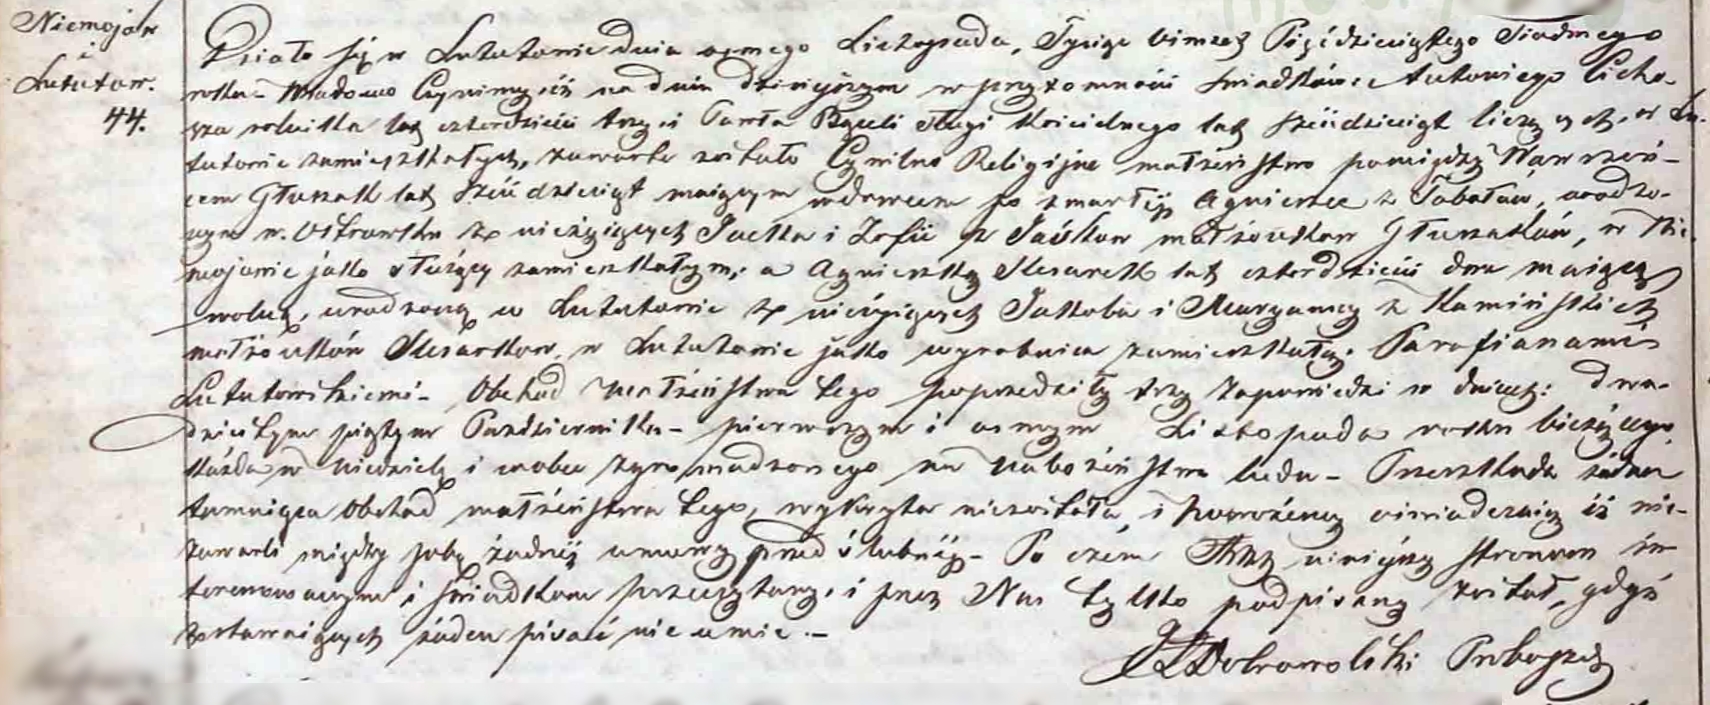 Niemojów
i
Lututow.
44.
Działo się w Lututowie dnia osmego Listopada, Tysiąc Ośmset Pięćdziesiątego Siódmego
roku - Wiadomo Czynimy iż na dniu dzisiejszym w przytomności świadków: Antoniego Cicho-
sza rolnika lat czterdzieści trzy i Pawła sługi kościelnego lat sześćdziesiąt liczących, w Lu-
tutowie zamieszkałych, zawarte zostało Cywilno Religijne małżeństwo pomiędzy Wawrzeń-
cem Głuszak lat sześćdziesiąt mającym wdowcem po zmarłej Agnieszce z urodzo-
nym w. Ostrowsku z nieżyjących Jacka i Zofii z małżonków Głuszaków, w Nie-
mojowie jako służący zamieszkałym; a Agnieszką Slusarek lat czterdzieści dwa mającą
wolną, urodzoną w Lututowie z nieżyjących Jakoba i Maryanny z Kamińskich
małżonków Slusarków, w Lututowie jako wyrobnica zamieszkałą; Parafianami
Lututowskiemi - Obchod małżeństwa tego poprzedziły trzy zapowiedzi w dniach: dwu-
dziestym piątym Października - pierwszym i osmym Listopada roku bieżącego,
każda w niedzielę i wobec zgromadzonego na nabożeństwa ludu - Przeszkoda żadna
tamująca obchod małżeństwa tego, wykryta niezostała, i Nowożeńcy oświadczają iż nie-
zawarli między sobą żadnej umowy przedślubnéj - Po czém Akt niniejszy stronom in-
teressowanym i świadkom przeczytany, i przez Nas tylko podpisany został, gdyż
zostawających żaden pisać nie umie. -
Dobrowolski Proboszcz